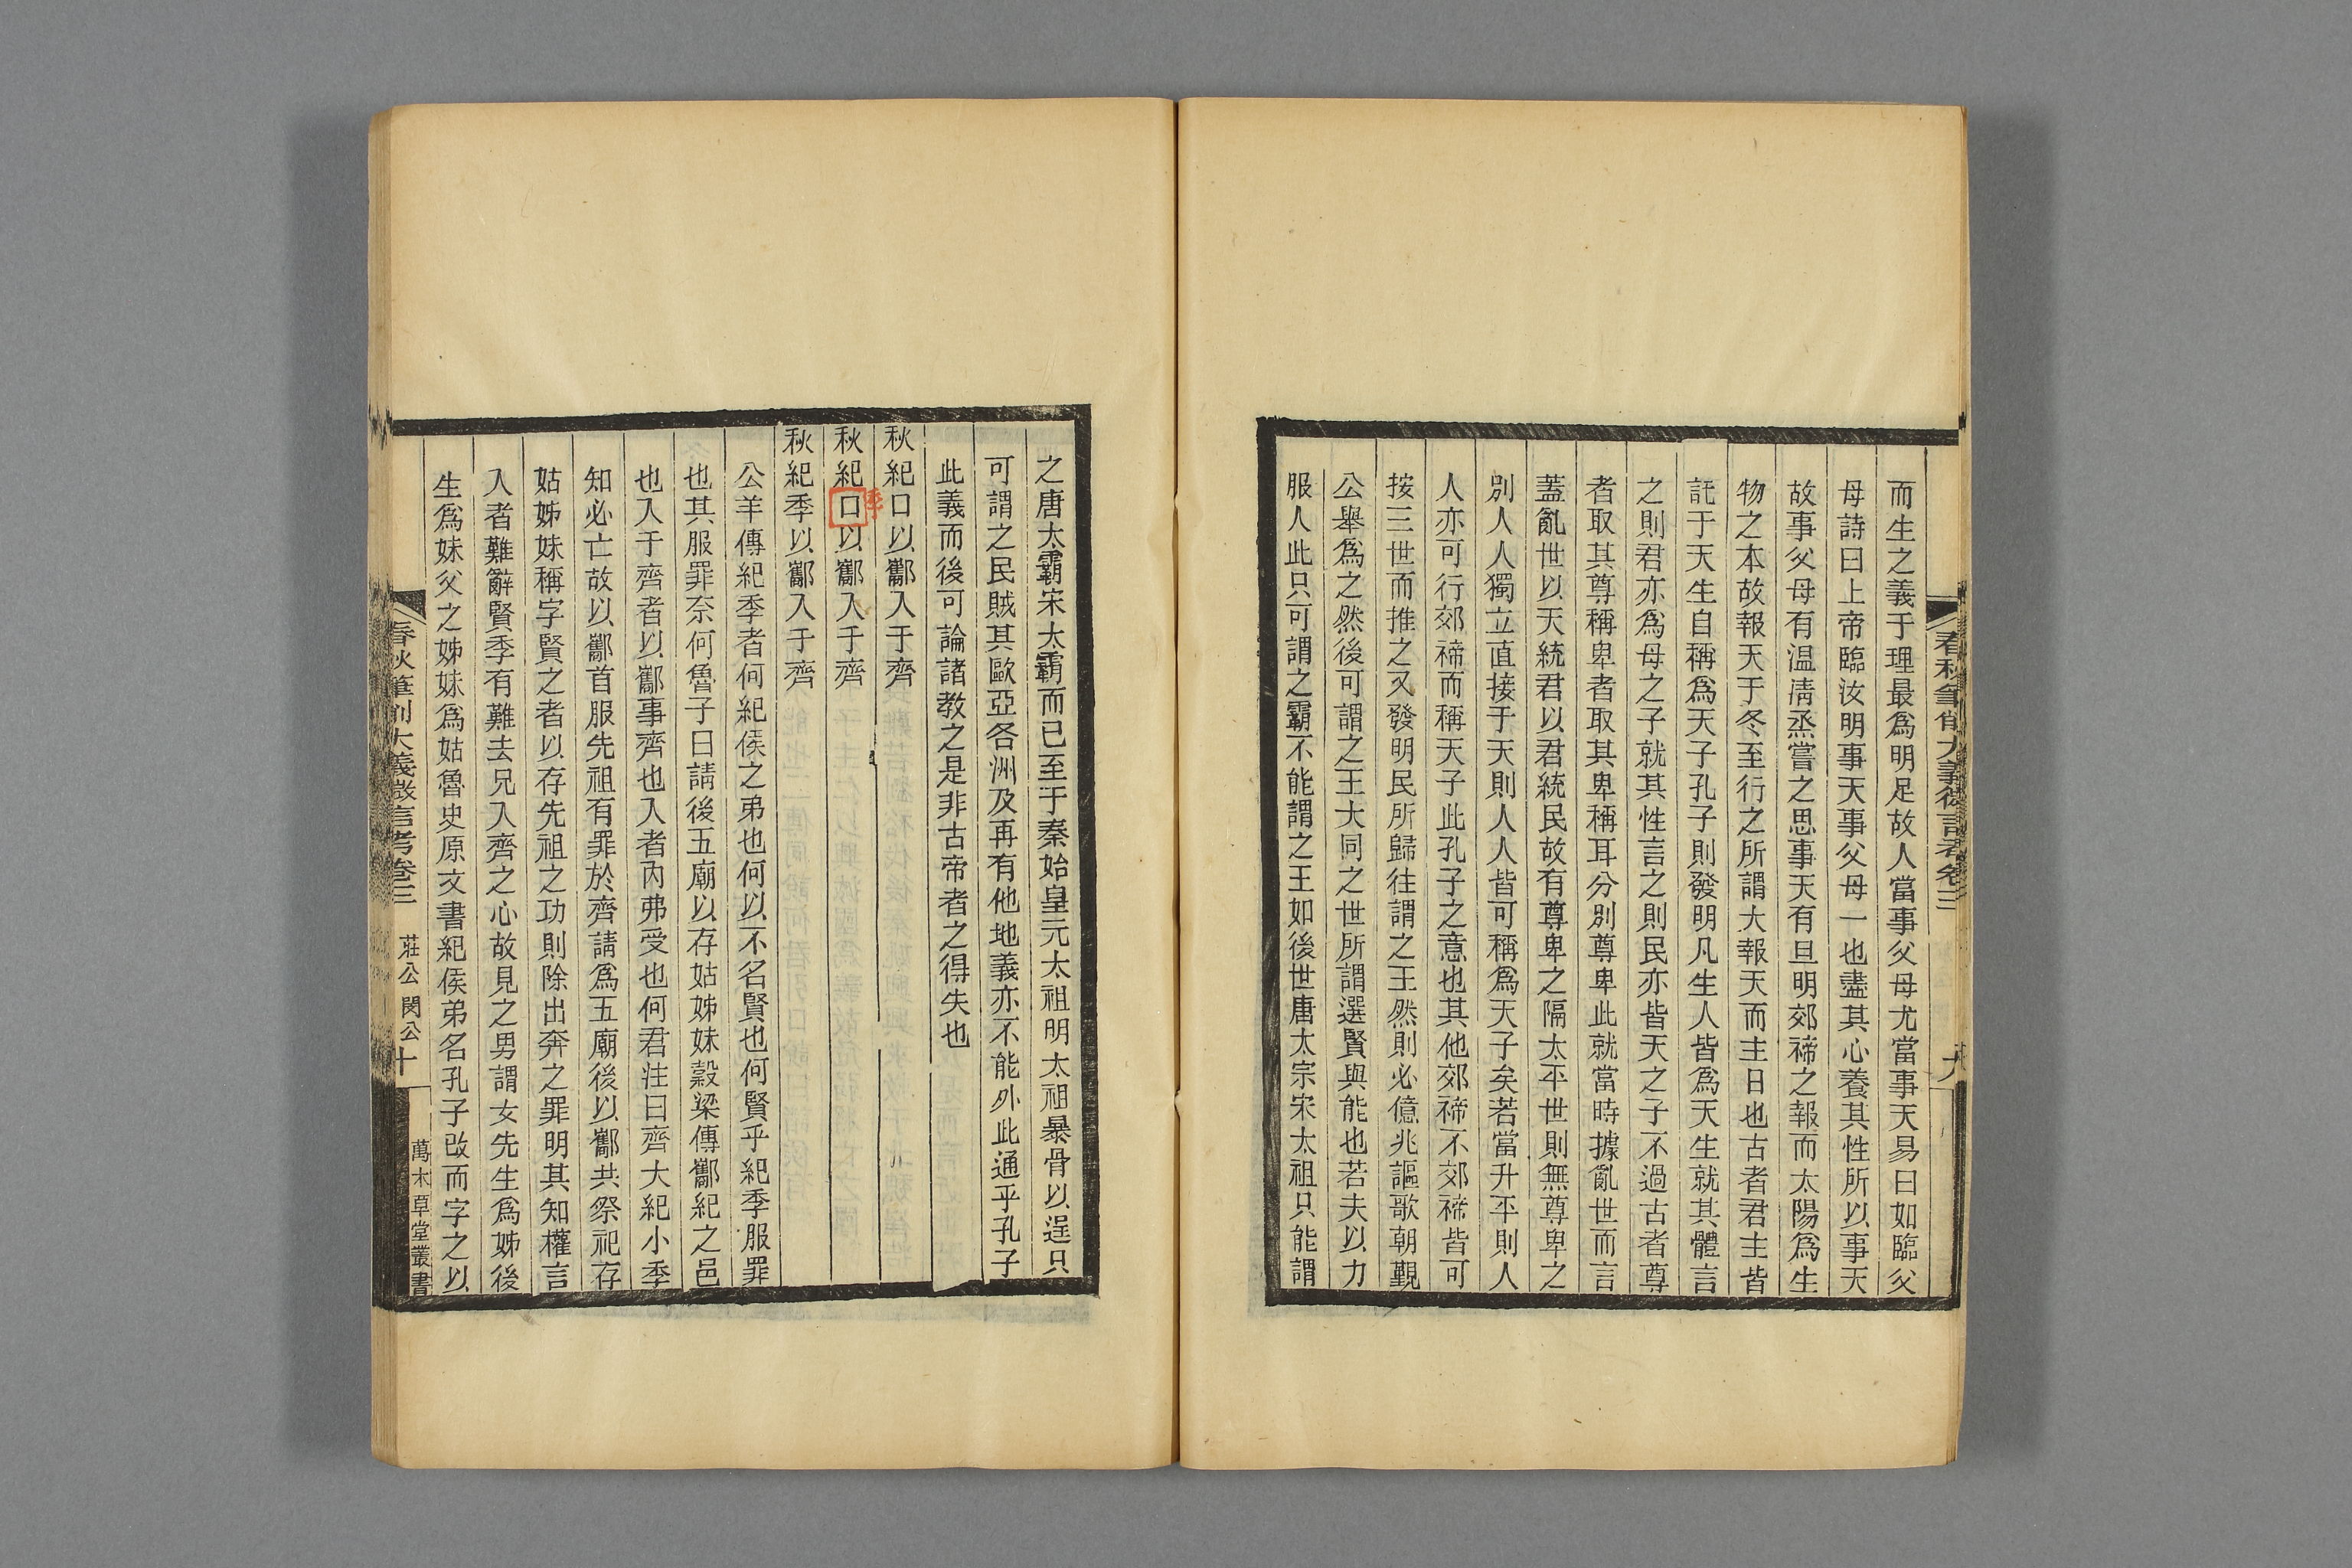 春秋筆削大義微言考卷三
而生之義于理最爲明足故人當事父母尤當事天易曰如臨父
母詩曰上帝臨汝明事天事父母一也盡其心養其性所以事天
故事父母有温凊烝嘗之思事天有旦明郊禘之報而太陽爲生
物之本故報天于冬至行之所謂大報天而主日也古者君主皆
託于天生自稱爲天子孔子則發明凡生人皆爲天生就其體言
之則君亦爲母之子就其性言之則民亦皆天之子不過古者尊
者取其尊稱卑者取其卑稱耳分別尊卑此就當時據亂世而言
蓋亂世以天統君以君統民故有尊卑之隔太平世則無尊卑之
別人人獨立直接于天則人人皆可稱爲天子矣若當升平則人
人亦可行郊禘而稱天子此孔子之意也其他郊禘不郊禘皆可
按三世而推之又發明民所歸往謂之王然則必億兆謳歌朝覲
公舉爲之然後可謂之王大同之世所謂選賢與能也若夫以力
服人此只可謂之霸不能謂之王如後世唐太宗宋太祖只能謂
之唐太霸宋太霸而已至于秦始皇元太祖明太祖暴骨以逞只
可謂之民賊其歐亞各洲及再有他地義亦不能外此通乎孔子
此義而後可論諸教之是非古帝者之得失也
秋紀口以酅入于齊
秋紀口以酅入于齊
季
秋紀季以酅入于齊
公羊傳紀季者何紀侯之弟也何以不名賢也何賢乎紀季服罪
也其服罪奈何魯子曰請後五廟以存姑姊妹穀梁傳酅紀之邑
也入于齊者以酅事齊也入者內弗受也何君注曰齊大紀小季
知必亡故以酅首服先祖有罪於齊請爲五廟後以酅共祭祀存
姑姊妹稱字賢之者以存先祖之功則除出奔之罪明其知權言
入者難辭賢季有難去兄入齊之心故見之男謂女先生爲姊後
生爲妹父之姊妹爲姑魯史原文書紀侯弟名孔子改而字之以
春秋筆削大義微言考卷三
莊公 閔公
十
萬木草堂叢書